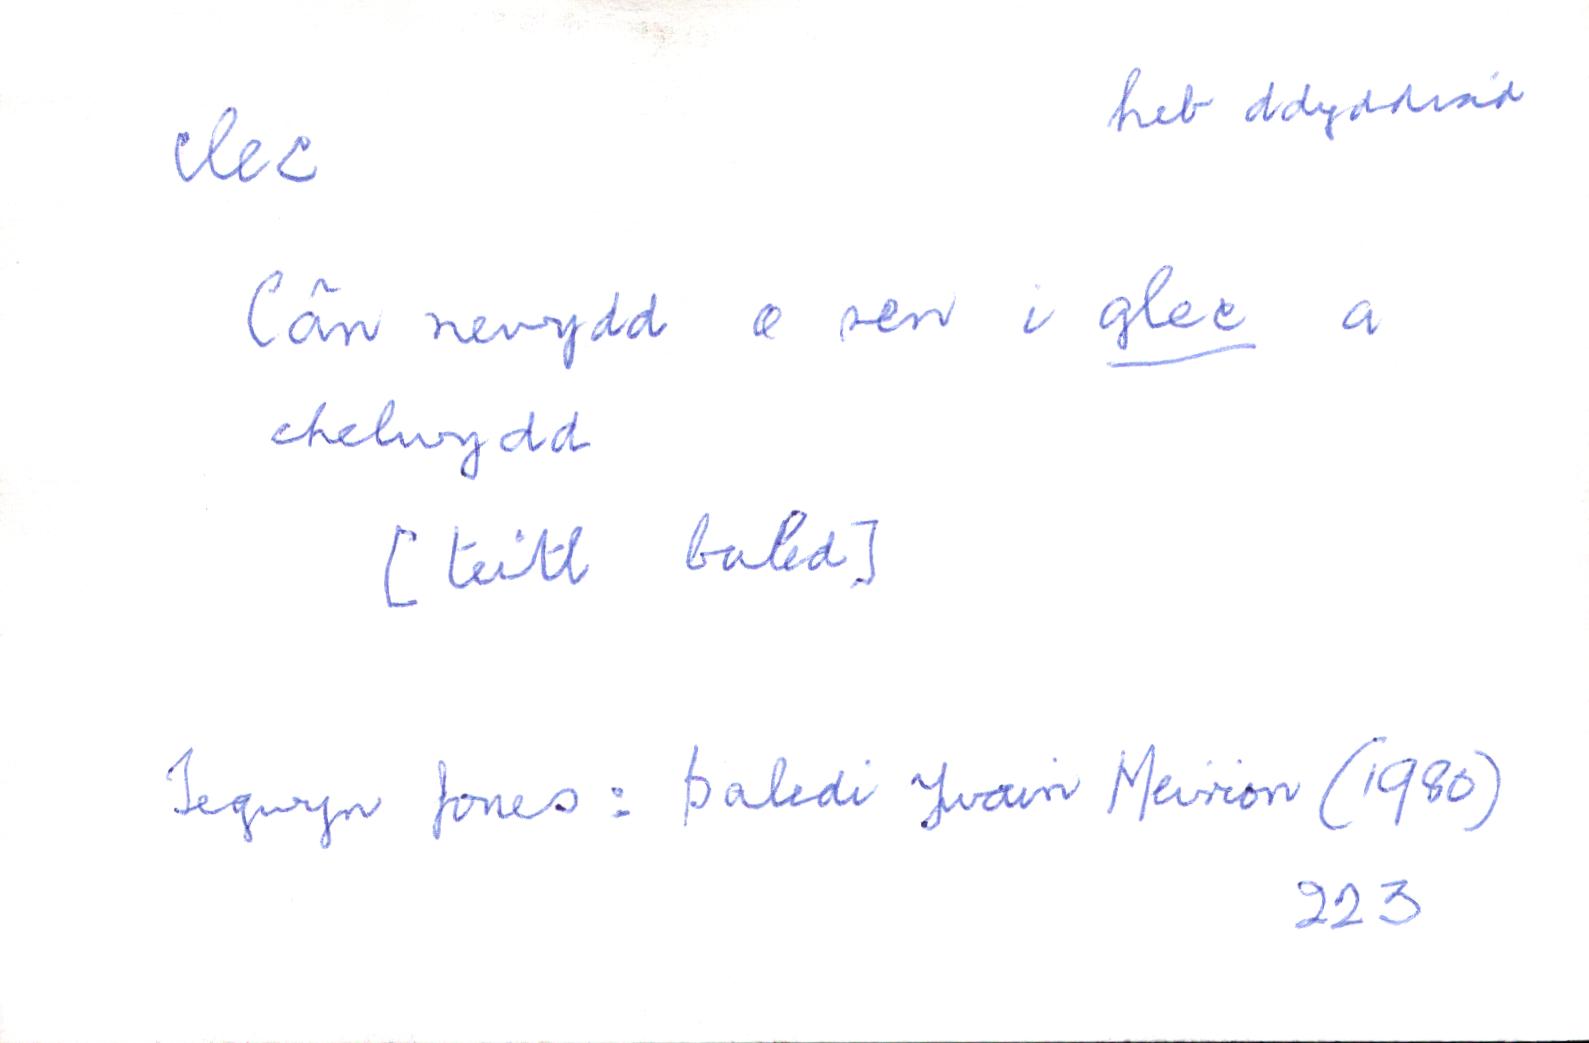 clec
heb ddyddiad
Cân newydd o sen i glec a
chelwydd
[teitl baled]
Tegwyn Jones: Baledi Ywain Meirion (1980)
223